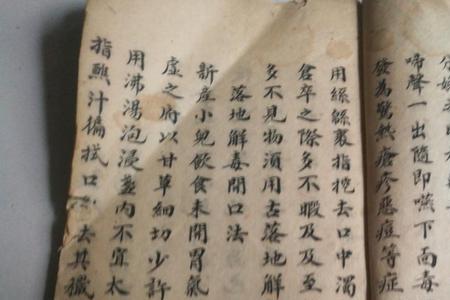 啼聲一出隨即嚥下而毒
發為驚熱瘡疹惡痘等症
用絲緜裹指挖去口中濁
倉卒之際多不暇及及至
多不見物須用古落地解
落地解毒開口法
新產小兒飲食未開胃氣
虛之府以甘草細切少許
用沸湯泡浸盞內不宜太
指蘸汁徧拭口去其穢